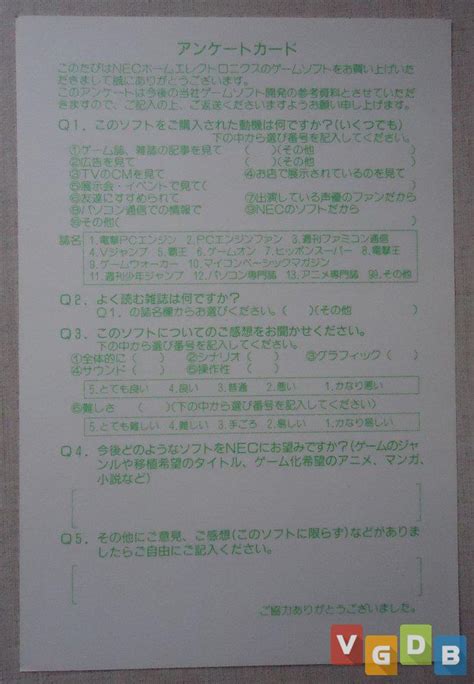 アンケートカード
このたびはNECホームエレクトロニクスのゲームソフトをお買い上げいた
だきまして誠にありがとうございます。
このアンケートは今後の当社ゲームソフト開発の参考資料とさせていただ
きますので、ご記入の上、ご返送くださいますようお願い申し上げます。
Q1．このソフトをご購入された動機は何ですか？(いくつでも)
下の中から選び番号を記入してください。
①ゲーム誌、雑誌の記事を見て（　）(その他　　　)
②広告を見て　　　（　）(その他　　　)
③TVのCMを見て　④お店で展示されているのを見て
⑤展示会・イベントで見て(　　　)
⑥友達にすすめられて　⑦出演している声優のファンだから
⑧パソコン通信での情報で　⑨NECのソフトだから
⑩その他(　　　)
誌名 1．電撃PCエンジン 2．PCエンジンファン 3．週刊ファミコン通信
4．Vジャンプ 5．覇王 6．ゲームオン 7．ヒッポンスーパー 8．電撃王
9．ゲームウォーカー 10．マイコンベーシックマガジン
11．週刊少年ジャンプ 12．パソコン専門誌 13．アニメ専門誌 99．その他
Q2．よく読む雑誌は何ですか？
Q1．の誌名欄からお選びください。（　）(その他　　　)
Q3．このソフトについてのご感想をお聞かせください。
下の中から選び番号を記入してください。
①全体的に（　）②シナリオ（　）③グラフィック（　）
④サウンド（　）⑤操作性（　）
5．とても良い 4．良い 3．普通 2．悪い 1．かなり悪い
⑥難しさ（　）(下の中から選び番号を記入してください)
5．とても難しい 4．難しい 3．手ごろ 2．易しい 1．かなり易しい
Q4．今後どのようなソフトをNECにお望みですか？(ゲームのジャ
ンルや移植希望のタイトル、ゲーム化希望のアニメ、マンガ、
小説など)
Q5．その他にご意見、ご感想(このソフトに限らず)などがありま
したらご自由にご記入ください。
ご協力ありがとうございました。
VGDB